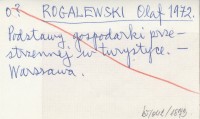 o? ROGALEWSKI Olaf 1972.
Podstawy gospodarki prze-
strzennej w turystyce. —
Warszawa.